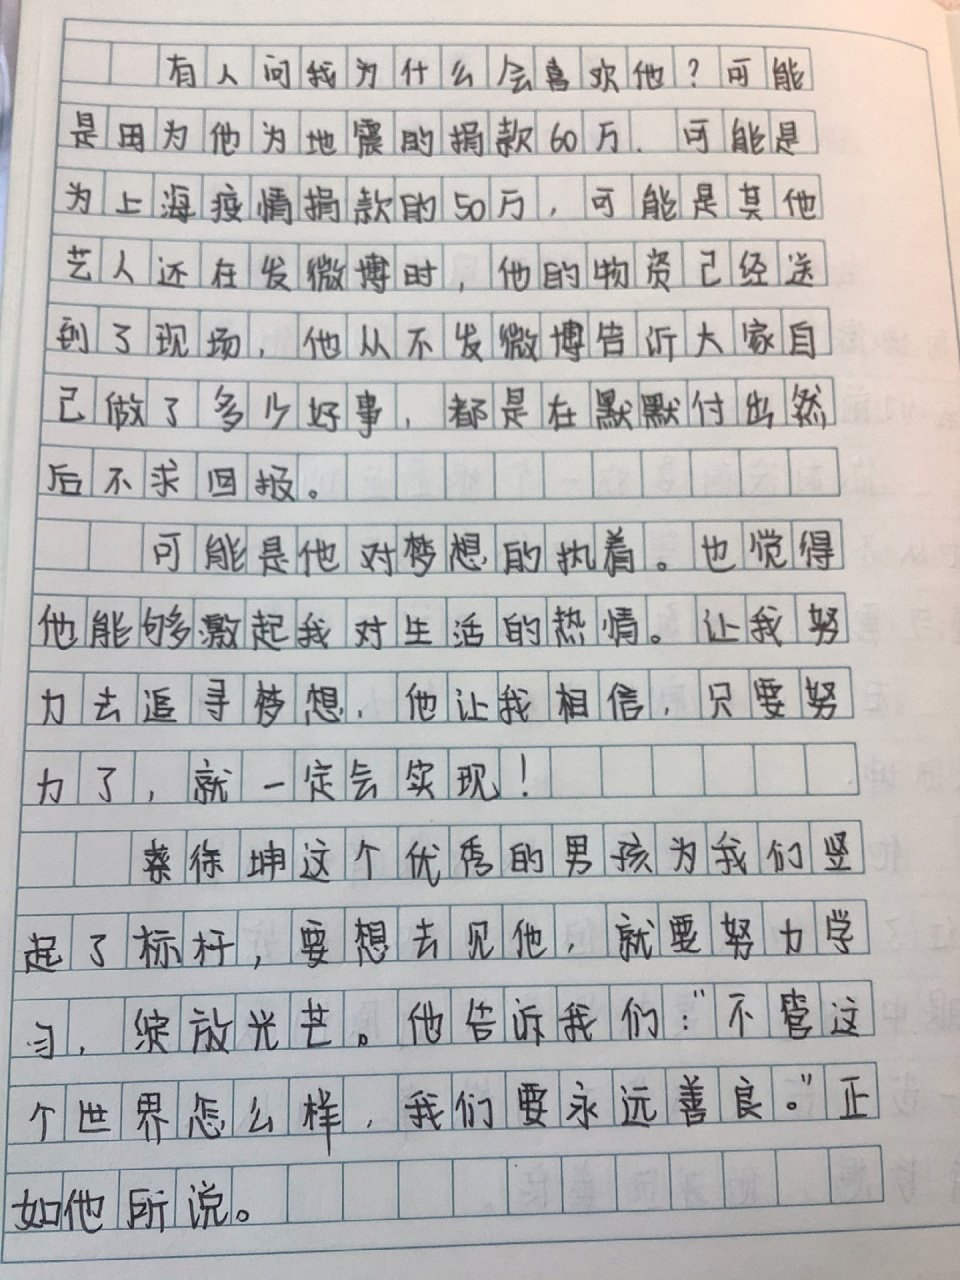 有人问我为什么会喜欢他？可能
是因为他为地震的捐款60万，可能是
为上海疫情捐款的50万，可能是其他
艺人还在发微博时，他的物资已经送
到了现场，他从不发微博告诉大家自
己做了多少好事，都是在默默付出然
后不求回报。
可能是他对梦想的执着。也觉得
他能够激起我对生活的热情。让我努
力去追寻梦想，他让我相信，只要努
力了，就一定会实现！
蔡徐坤这个优秀的男孩为我们竖
起了标杆，要想去见他，就要努力学
习，绽放光芒。他告诉我们：“不管这
个世界怎么样，我们要永远善良。”正
如他所说。